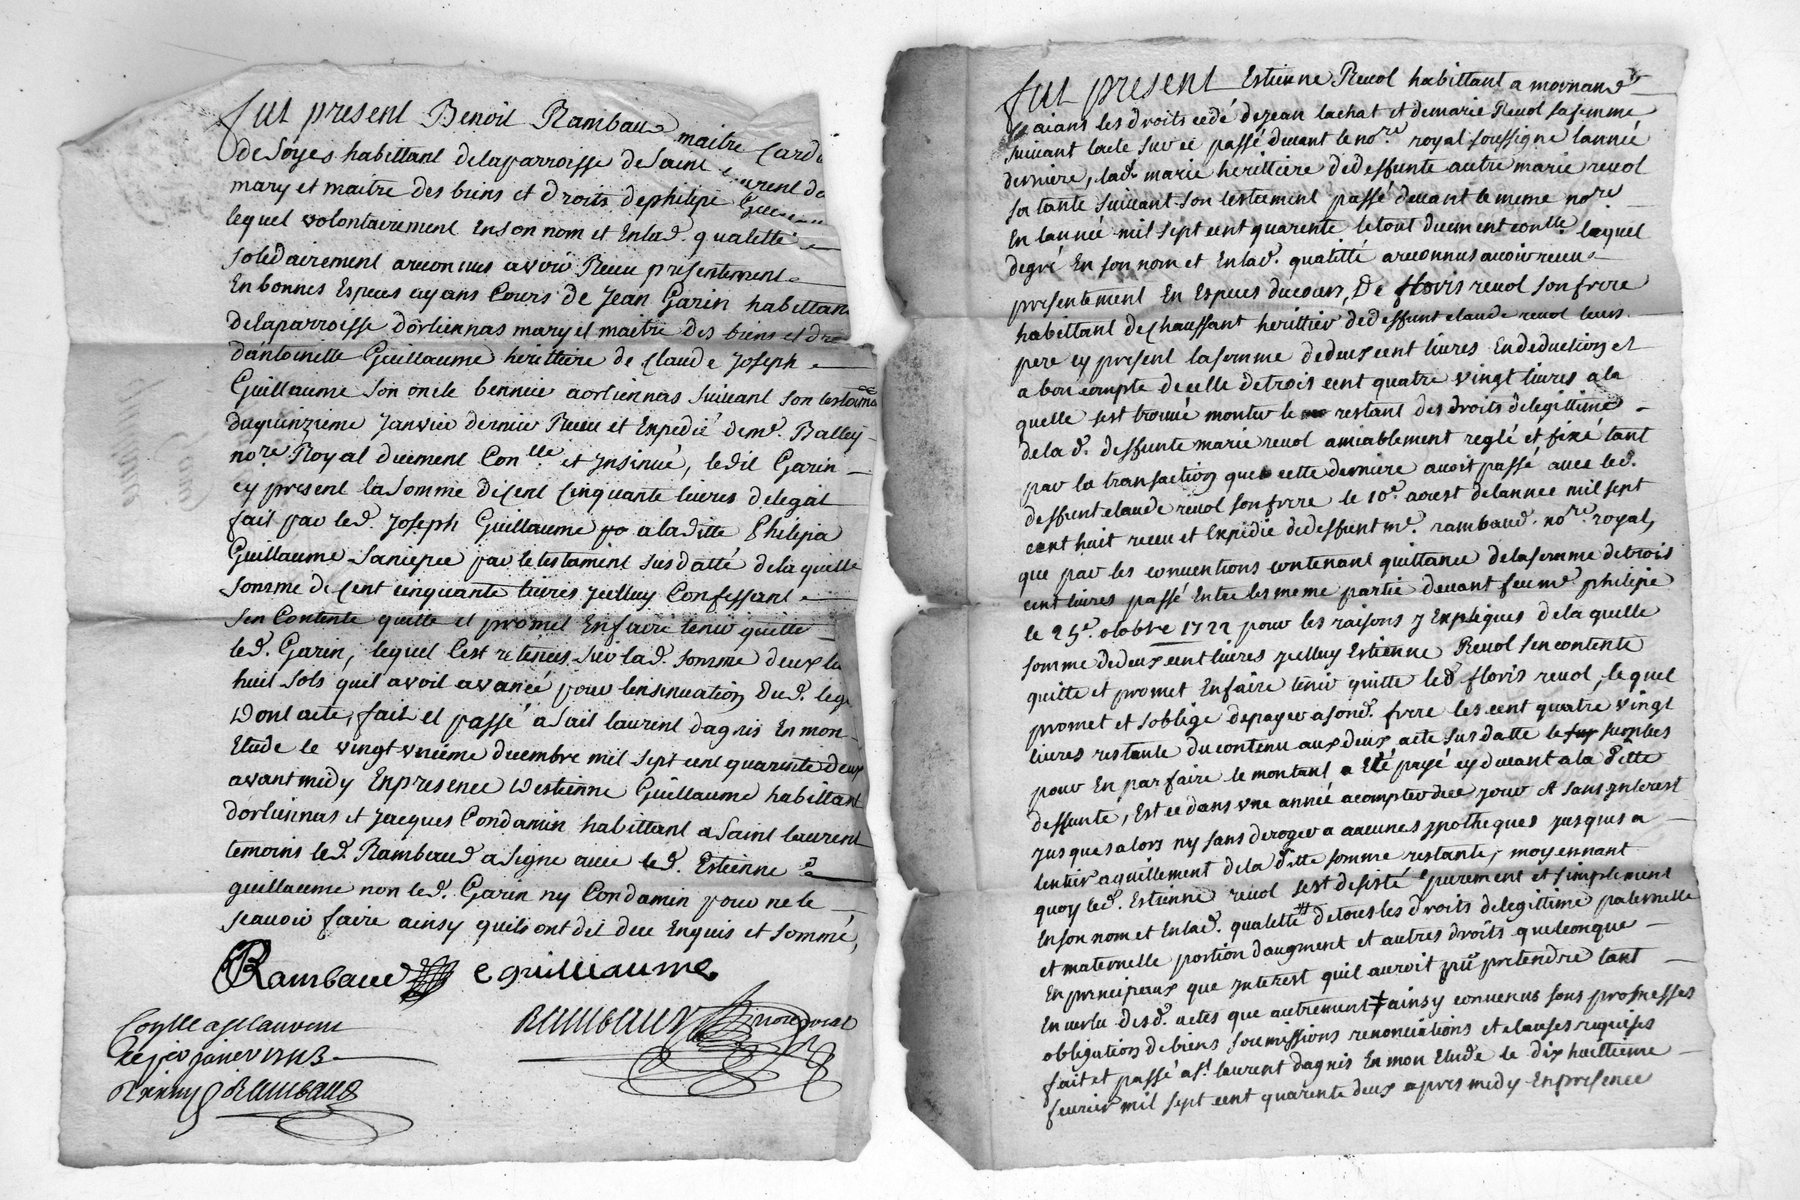 fut present Benoit Rambau maitre Card
de Soyes habittant delaparroisse de Saint
mary et maitre des biens et droits dephilipe
lequel volontairement Enson nom et Enlad. qualetté
solidairement areconnus avoir Receu presentement
En bonnes Especes ayans Cours de Jean Garin habittan
delaparroisse dorliennas mary et maitre des biens et dro
dantoinette Guillaume herittiere de Claude Joseph
Guillaume Son oncle aorliennas Suivant Son testam
duquinzieme Janvier dernier Receu et Expedié deme. Balley
nore Royal duement Conlle et Jnsinué, ledit Garin
cy present la Somme de Cent Cinquante livres de legat
fait par led. Joseph Guillaume a laditte Philipa
Guillaume Saniepce par le testament susdatté delaquelle
Somme de Cent cinquante livres Confessant
Sen Contente quitte et promet Enfaire tenir quitte
led. Garin, lequel Cest retenus sur lad. somme deux li
huit Sols quil avoit avancé pour Linsinuation dud. lega
Dont acte, fait et passé a Sait laurent dagnis En mon
Etude le vingt unieme decembre mil sept cent quarente deux
avant midy Enpresence destienne Guillaume habittant
dorliennas et Jacques Condamin habittant a Saint laurent
temoins led. Rambaud a Signe avec led. Estienne
guillaume non led. Garin ny Condamin pour ne le
scavoir faire ainsy quils ont dit dee Enquis et sommé,
Rambaud e guilliaume
Rambaud nore royal
janer 1743
Rambaud
fut present Estienne Revol habittant a mornand
aians les droits cedé dejean lachat et demarie Revol safemme
suivant lacte sur ce passé devant le nore royal soussigné lannée
derniere, lad. marie herittiere dedeffunte autre marie revol
sa tante suivant son testament passé devant le meme nore
En lannée mil sept cent quarente le tout duement conlle lequel
degré En son nom et Enlad. qualitté areconnus avoir receu
presentement En Especes ducours, De floris revol son frere
habittant dechaussant herittier dedeffunt claude revol leurs
pere cy present lasomme dedeux cent livres En deduction et
a bon compte decelle detrois cent quatre vingt livres a la
quelle sest trouvé monter le restant des droits delegittime
de la d. deffunte marie revol amiablement reglé et fixé tant
par la transaction que cette derniere avoit passé avec led.
deffunt claude revol son frere le 10e. aoust delannée mil sept
cent huit receu et Expedié dedeffunt me. rambaud. nore. royal,
que par les conventions contenant quittance delasomme detrois
cent livres passé Entre les meme partie devant feu me. philipe
le 25e. octobre 1722 pour les raisons y Expliques de la quelle
somme dedeux cent livres Estienne Revol sencontente
quitte et promet Enfaire tenir quitte led floris revol, le quel
promet et soblige depayer a sond. frere les cent quatre vingt
livres restante du contenu aux deux acte susdatte
pour En parfaire le montant a eté payé cy devant a la ditte
deffunte, Est ce dans une année acompter dece jour et sans Jnterest
jusques alors ny sans deroger a aucunes ypotheques jusques a
lentier aquittement de la ditte somme restante, moyennant
quoy led. Estienne revol sest desisté purement et simplement
En son nom et Enlad. qualetté detous les droits delegittime paternelle
et maternelle portion daugment et autres droits quelconque
En principaux que Jnterest quil auroit pu pretendre tant
En vertu desd. actes que autrement ainsy convenus sous promesses
obligation debiens soumissions renonciations et clauses requises
fait et passé a st. laurent dagnis En mon Etude le dix huittieme
fevrier mil sept cent quarente deux apres midy Enpresence